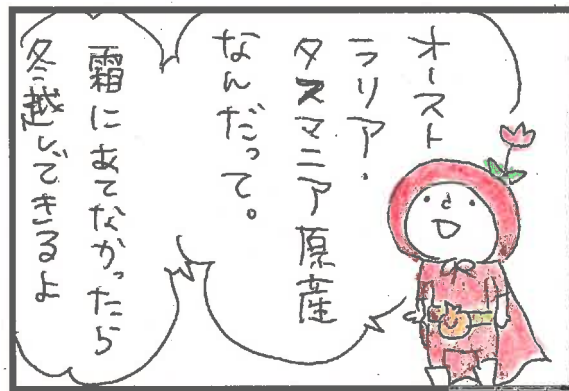 オースト
ラリア・
タスマニア原産
なんだって。
霜にあてなかったら
冬越しできるよ